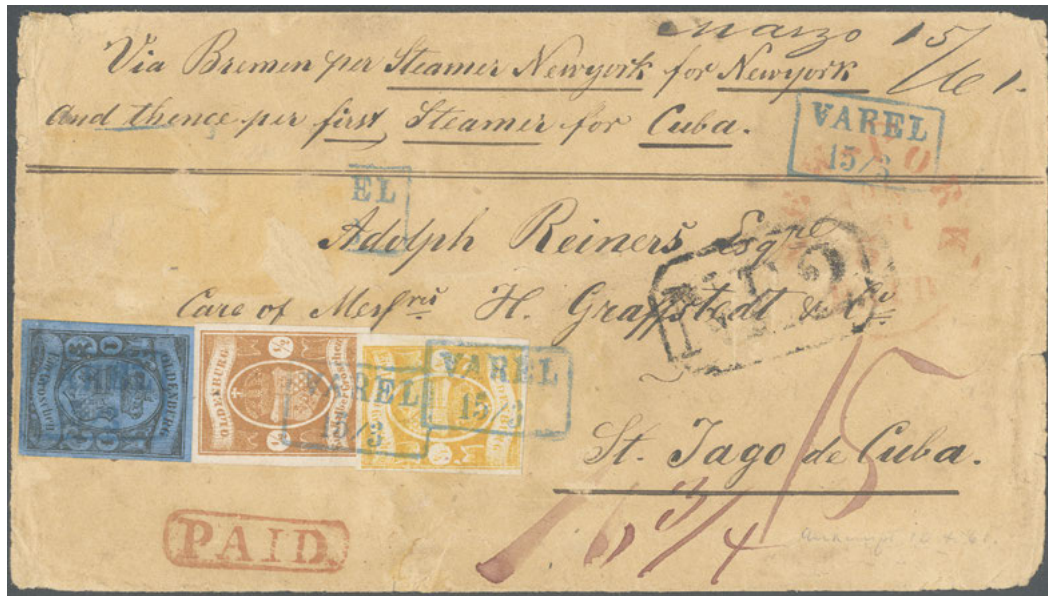 Marzo 15/61.
Via Bremen per Steamer Newyork for Newyork
And thence per first Steamer for Cuba.
VAREL
15/3
EL
Adolph Reiners Esqre
NE2
Care of Messrs H. Graffstedt & Co
OLDENBURG
1/2
OLDENBURG
VAREL
15/3
VAREL
15/3
St. Jago de Cuba.
15
16 3/4
PAID